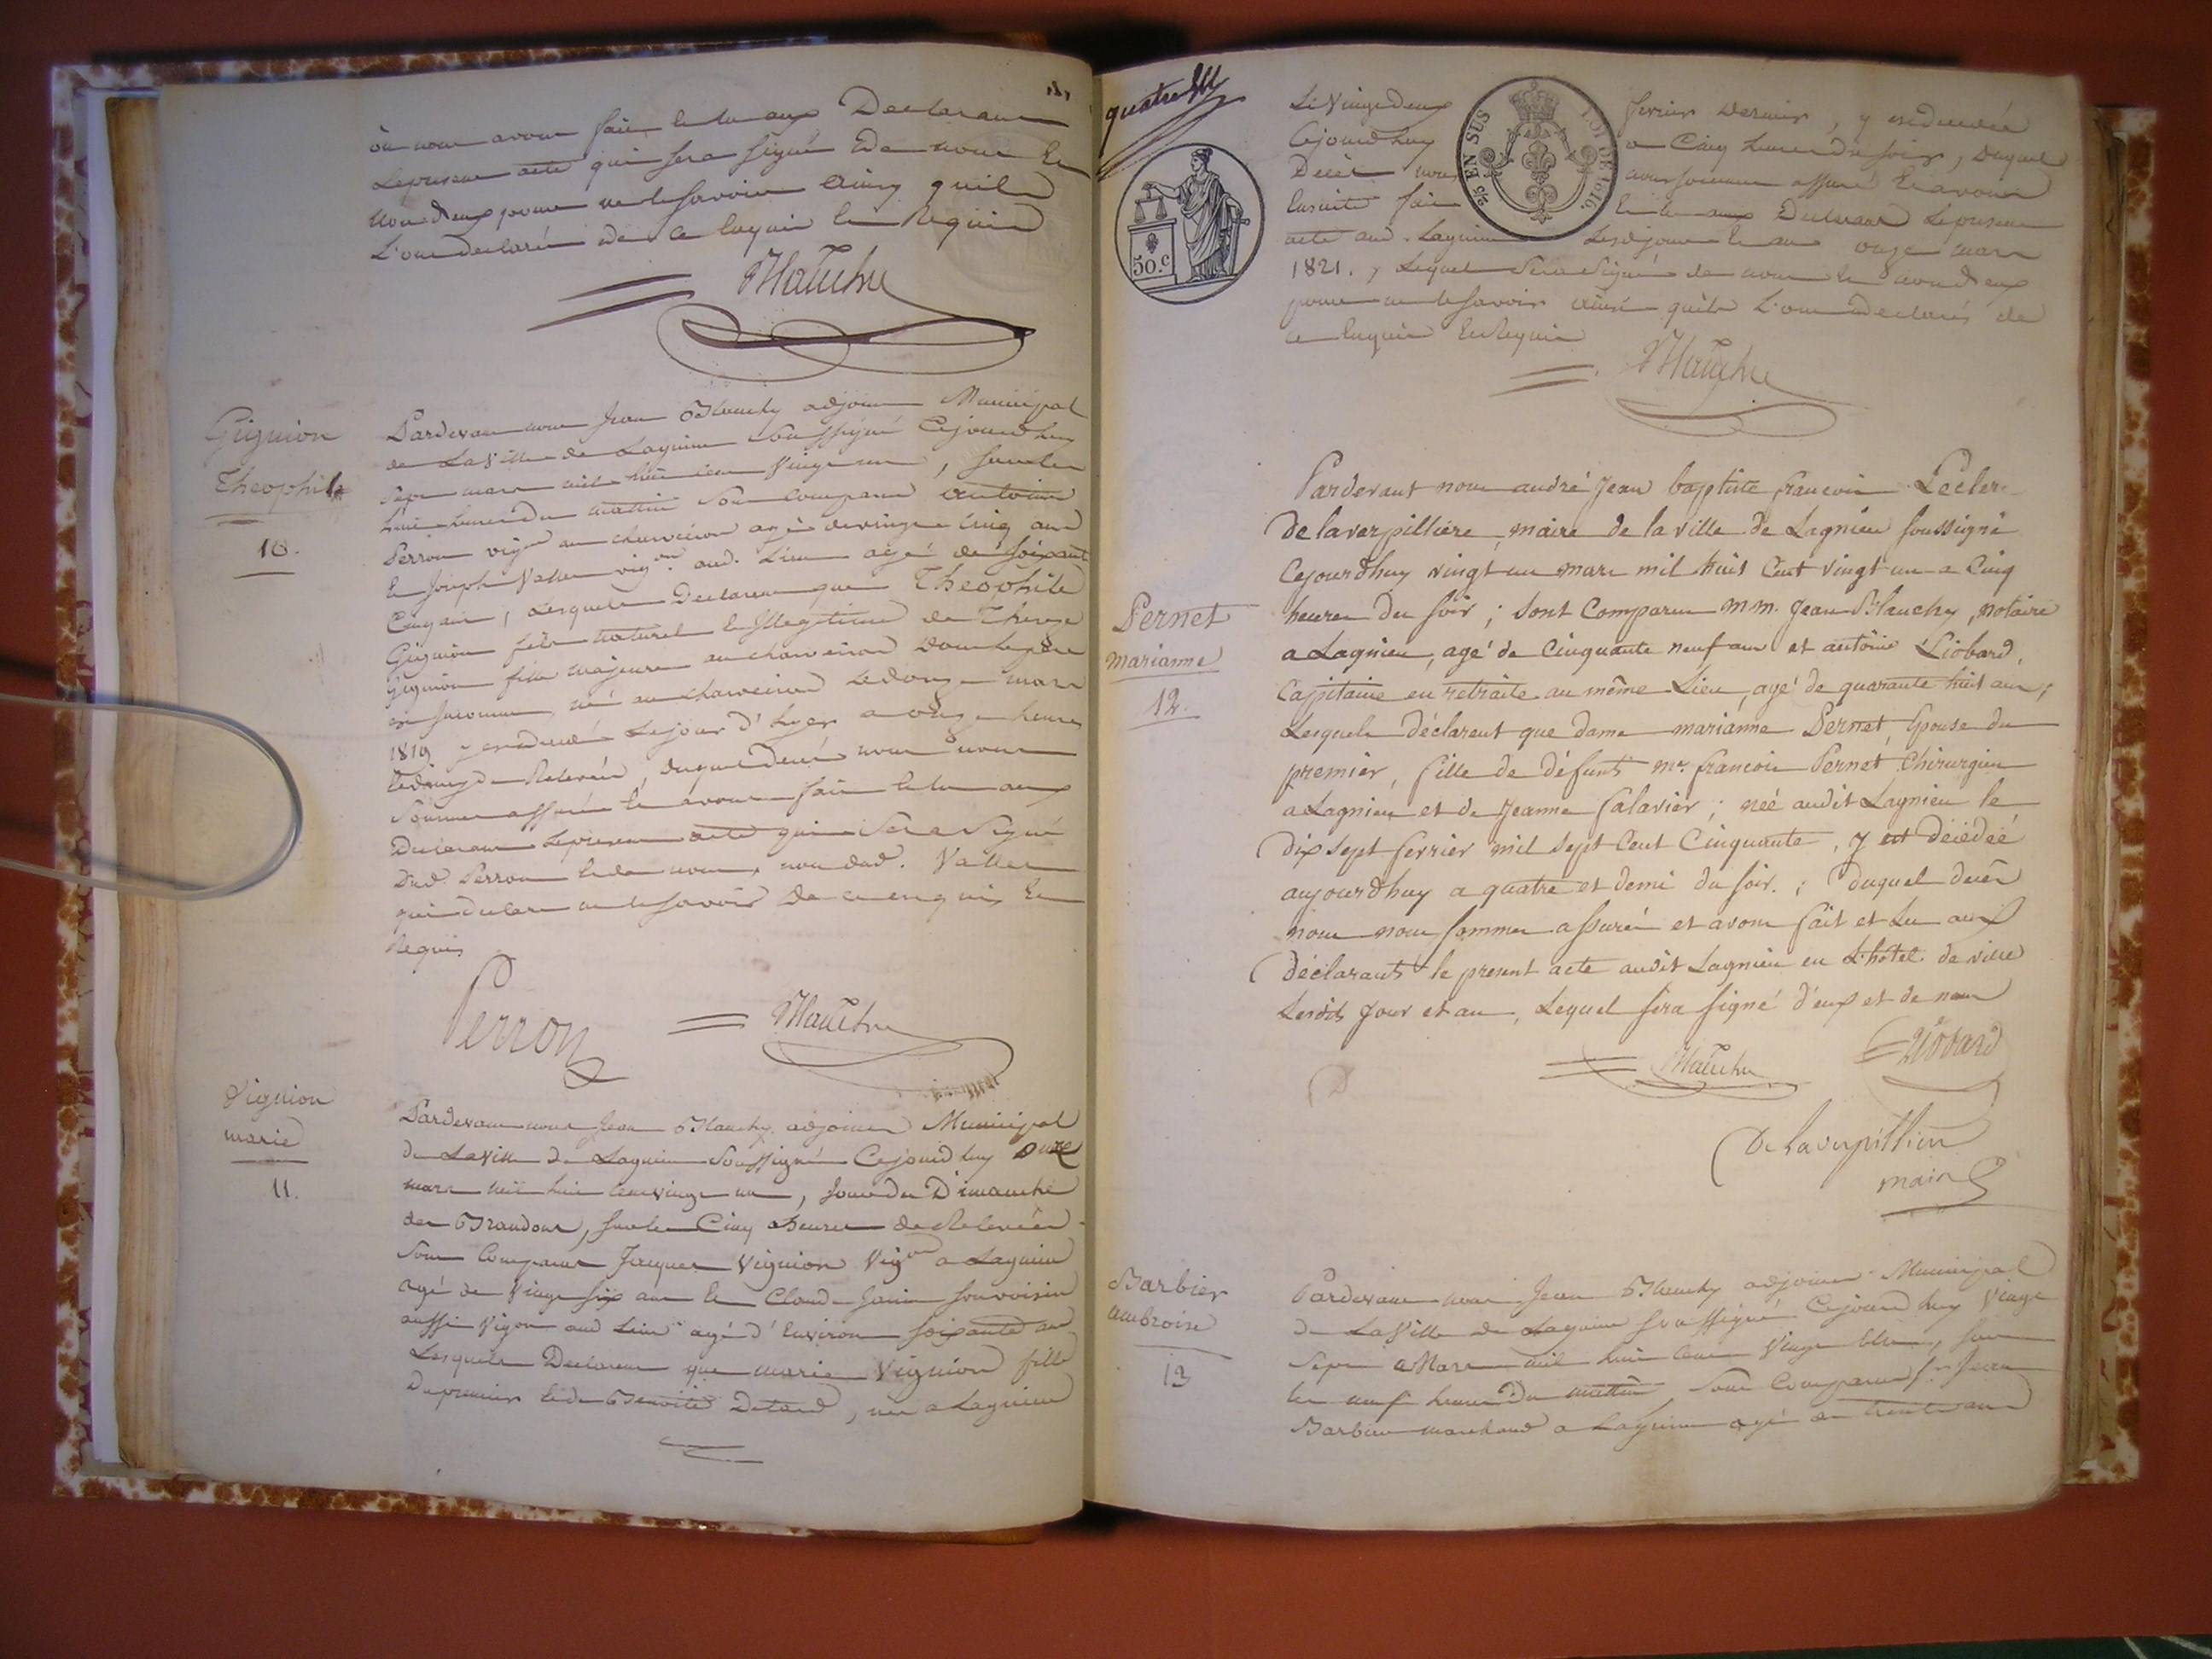 où nous avons fait et lu aux Declarans
Lepresent acte qui sera signé de nous et
non d'eux pour ne le savoir Ainsy quils
L'ont declarés de ce Enquis et Requis
Blanchy
Guignion
Theophile
10.
Pardevant nous Jean Blanchy adjoint Municipal
de La Ville de Lagnieu Soussigné Cejourdhuy
Sept mars mil huit cent Vingt un, sur les
huit heures du mattin Sont comparus antoine
Perron vig.on au charveiron agé de vingt Cinq ans
et Joseph Vallet vig.on aud. Lieu agé de soixante
Cinq ans, Lesquels Declarent que Theophile
Guignion fils naturel et Illegitime de Therese
Guignion fille majeure au charveiron dont le pere
est Inconnu, né au charveiron le douze mars
1819 y est decedé Lejour d'hyer a onze heures
de Relevée, duquel decés nous nous
Sommes assurés et avons fait et lu aux
Declarans Lepresent acte qui Sera Signé
Dud. Perron et de nous, non dud. Vallet
qui declare ne le savoir de ce enquis Et
Requis
Perron
Blanchy
Vignion
marie
11.
Pardevant nous Jean Blanchy adjoint Municipal
de La Ville de Lagnieu Soussigné Cejourdhuy onze
mars mil huit cent vingt un, Jour du Dimanche
des Brandons, sur les Cinq heures de Relevées
Sont Comparus Jacques Vignion Vig.on a Lagnieu
agé de Vingt six ans et Claude Janin son voisin
aussi Vigon aud Lieu agé d'Environ soixante ans
Lesquels Declarent que marie Vignion fille
Dupremier et de Benoite Detard, née a Lagnieu
quatre
50.c
2/5 EN SUS
LOI DE 1816.
Le Vingt deux fevrier dernier, y est decedée
Cejourdhuy a Cinq heures du soir, Duquel
Décès nous nous sommes assuré Et avons
Ensuite fait et lu aux Declarans Lepresent
acte aud. Lagnieu Lesd jour et an onze mars
1821., Lequel Sera Signé de nous et non d'eux
pour ne le savoir ainsi quils L'ont declarés de
ce Enquis Et Requis
Blanchy
Pernet
marianne
12.
Pardevant nous andré Jean baptiste francois Lecler
De laverpilliere, maire de la ville de Lagnieu soussigné
Cejourdhuy vingt un mars mil huit Cent vingt un a Cinq
heures du soir; sont Comparus m.m. Jean Blanchy, notaire
a Lagnieu, agé de Cinquante neuf ans et antoine Liobard,
Capitaine en retraite au même Lieu, agé de quarante huit ans;
Lesquels déclarent que dame marianne Pernet, Epouse du
premier, fille de défunts m.r francois Pernet Chirurgien
a Lagnieu et de Jeanne Salavier; née audit Lagnieu le
Dix sept fevrier mil sept Cent Cinquante, y est décédée
aujourdhuy a quatre et demi du soir.; duquel decès
nous nous sommes assuré et avons fait et lu aux
Déclarants le present acte audit Lagnieu en L'hôtel de ville
Lesdits jour et an, Lequel sera signé d'eux et de nous
Blanchy
Liobard
De Laverpilliere
maire
Barbier
ambroise
13
Pardevant nous Jean Blanchy adjoint Municipal
de La Ville de Lagnieu soussigné Cejourdhuy Vingt
Sept Mars mil huit cent Vingt un, sur
les neuf heures du mattin, Sont Comparus Sr. Jean
Barbier marchand a Lagnieu agé de trente ans